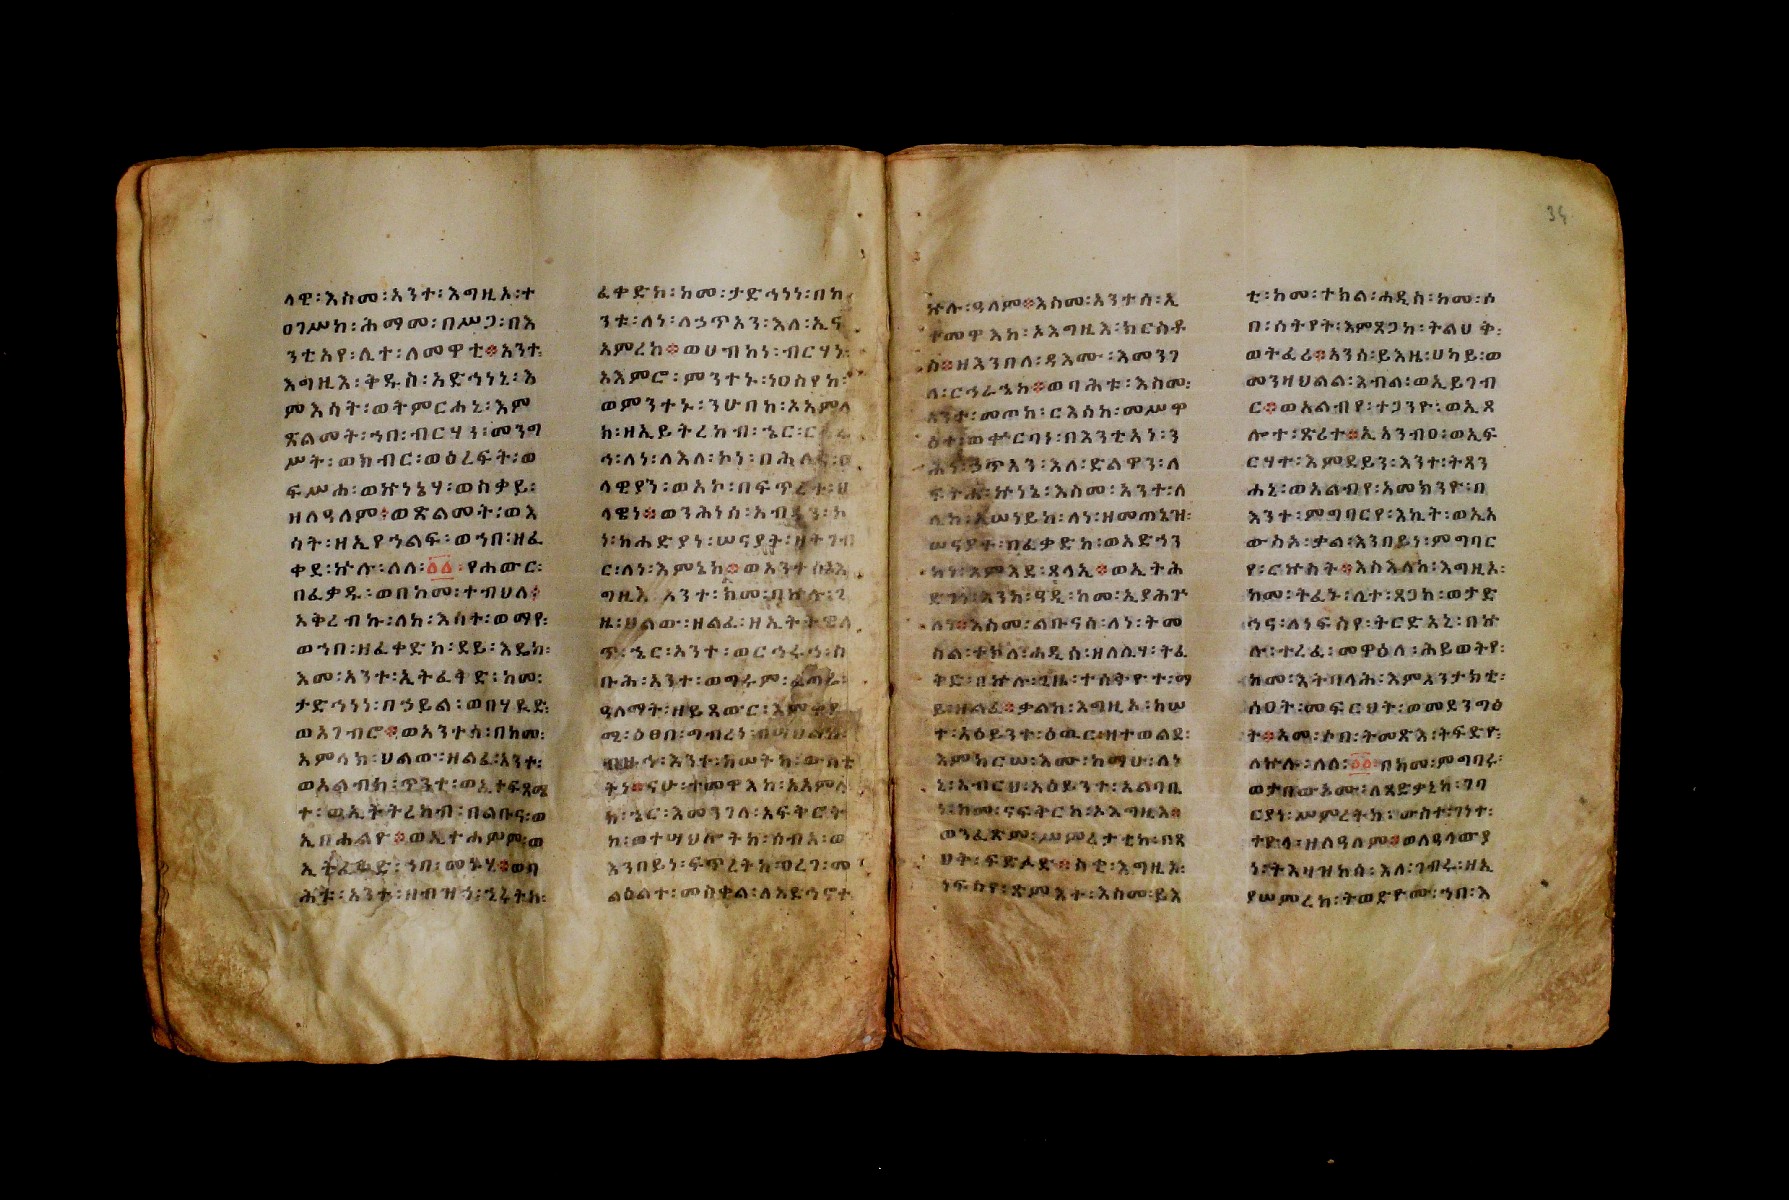 ላዊ፡እስመ፡አንተ፡እግዚአ፡ተ
ዐገሥከ፡ሕማመ፡በሥጋ፡በእ
ንቲአየ፡ሊተ፡ለመዋቲ፨አንተ፡
እግዚእ፡ቅዱስ፡አድኅነኒ፡እ
ምእሳት፡ወትምርሐኒ፡እም
ጽልመት፡ኀበ፡ብርሃን፡መንግ
ሥት፡ወክብር፡ወዕረፍት፡ወ
ፍሥሐ፡ወኵነኔሃ፡ወስቃይ፡
ዘለዓለም፡ወጽልመት፡ወእ
ሳት፡ዘኢየኀልፍ፡ወኀበ፡ዘፈ
ቀደ፡ኵሉ፡ለለ፡፩፩፡የሐውር፡
በፈቃዱ፡ወበከመ፡ተብህለ፨
አቅረብኩ፡ለከ፡እሳት፡ወማየ፡
ወኀበ፡ዘፈቀድከ፡ደይ፡እዴከ፡
እመ፡አንተ፡ኢትፈቅድ፡ከመ፡
ታድኅነነ፡በኃይል፡ወበሃይድ፡
ወእገብሮ፨ወአንተሰ፡በከመ፡
አምላክ፡ህልው፡ዘልፈ፡አንተ፡
ወአልብከ፡ጥንተ፡ወኢተፍጻሜ
ተ፡ወኢትትረከብ፡በልቡና፡ወ
ኢበሐልዮ፨ወኢተሐምም፡ወ
ኢትፈቅድ፡ኀበ፡መኑሂ፨ወባ
ሕቱ፡አንተ፡ዘብዝኀ፡ኂሩትከ፡
ፈቀድከ፡ከመ፡ታድኅነነ፡በከ
ንቱ፡ለነ፡ለኃጥአን፡እለ፡ኢና
አምረከ፨ወሀብከነ፡ብርሃነ፡
አእምሮ፡ምንተኑ፡ነዐስየከ፡
ወምንተኑ፡ንሁበከ፡ኦአምላ
ክ፡ዘኢይትረከብ፡ኄር፡
ኅ፡ለነ፡ለእለ፡ኮነ፡በሕሊና፡
ላዊያን፡ወአኮ፡በፍጥረት፡ህ
ላዌነ፨ወንሕነሰ፡አብዳን፡
ነ፡ከሐድያነ፡ሠናያት፡ዘትገብ
ር፡ለነ፡እምኔከ፨ወአንተሰ፡
ግዚእ፡አንተ፡ከመ፡በኵሉ፡ጊ
ዜ፡ህልው፡ዘልፈ፡ዘኢትትዌለ
ጥ፡ኄር፡አንተ፡ወርኅሩኅ፡ስ
ቡሕ፡አንተ፡ወግሩም፡ፈጣሬ፡
ዓለማት፡ዘይጸውር፡
ሚ፡ዕፀበ፡ግብረነ፡
ብዙኅ፡አንተ፡ክሡትከ፡ውስቴ
ትነ፨ናሁ፡ተመዋእከ፡አእምላ
ክ፡ኄር፡እመንገለ፡አፍቅሮት
ከ፡ወተሣህሎትከ፡ሰብእ፡ወ
እንበይነ፡ፍጥረትከ፡ዐረገ፡መ
ልዕልተ፡መስቀል፡ለአድኅኖተ
ኵሉ፡ዓለም፨እስመ፡አንተሰ፡ኢ
ተመዋእከ፡ኦእግዚእ፡ክርስቶ
ስ፨ዘእንበለ፡ዳእሙ፡እመንገ
ለ፡ርኅራኄከ፨ወባሕቱ፡እስመ፡
አንተ፡መጦከ፡ርእሰከ፡መሥዋ
ዕተ፡ወቍርባነ፡በእንቲአነ፡ን
ሕነ፡ኃጥአን፡እለ፡ድልዋን፡ለ
ፍትሕ፡ኵነኔ፡እስመ፡አንተ፡ለ
ሊከ፡አሠነይከ፡ለነ፡ዘመጠኔዝ፡
ሠናያተ፡በፈቃድከ፡ወአድኅን
ከነ፡እምእደ፡ጸላኢ፨ወኢትሕ
ድገነ፡እንከ፡ዓዲ፡ከመ፡ኢያሕጕ
ለነ፨እስመ፡ልቡናሰ፡ለነ፡ትመ
ስል፡ተክለ፡ሐዲስ፡ዘለሊሃ፡ትፈ
ቅድ፡በኵሉ፡ጊዜ፡ተሰትዮተ፡ማ
ይ፡ዘልፈ፨ቃልከ፡እግዚአ፡ከሠ
ተ፡አዕይንተ፡ዕዉር፡ዘተወልደ፡
እምከርሠ፡እሙ፡ከማሁ፡ለነ
ኒ፡አብርህ፡አዕይንተ፡አልባቢ
ነ፡ከመ፡ናፍቅርከ፡ኦእግዚአ፨
ወንፈጽም፡ሥምረታቲከ፡በጽ
ህት፡ፍድፉድ፨ስቲ፡እግዚአ፡
ነፍስየ፡ጽምእተ፡እስመ፡ይእ
ቲ፡ከመ፡ተክል፡ሐዲስ፡ከመ፡ሶ
በ፡ሰትየት፡እምጸጋከ፡ትልህቅ፡
ወትፈሪ፨አንሰ፡ይእዜ፡ሀካይ፡ወ
መንዛህልል፡እብል፡ወኢይገብ
ር፨ወአልብየ፡ተጋንዮ፡ወኢጸ
ሎተ፡ጽሪተ፨ኢአንብዐ፡ወኢፍ
ርሃተ፡እምደይን፡እንተ፡ትጸን
ሐኒ፡ወአልብየ፡አመክንዮ፡በ
እንተ፡ምግባርየ፡እኪት፡ወኢአ
ውስአ፡ቃል፡እንበይነ፡ምግባር
የ፡ርኵስት፨እስእለከ፡እግዚአ፡
ከመ፡ትፈኑ፡ሊተ፡ጸጋከ፡ወታድ
ኅና፡ለነፍስየ፡ትርድአኒ፡በኵ
ሉ፡ተረፈ፡መዋዕለ፡ሕይወትየ፡
ከመ፡እትባላሕ፡እምእንታክቲ፡
ሰዐት፡መፍርህት፡ወመደንግፅ
ት፨አመ፡ሶበ፡ትመጽእ፡ትፍድዮ፡
ለኵሉ፡ለለ፡፩፩፡በከመ፡ምግባሩ፡
ወታበውኦሙ፡ለጻድቃኒከ፡ገባ
ርያነ፡ሥምረትከ፡ውስተ፡ገነተ፡
ተድላ፡ዘለዓለም፨ወለዓላውያ
ነ፡ትእዛዝከሰ፡እለ፡ገብሩ፡ዘኢ
ያሠምረከ፡ትወድዮሙ፡ኀበ፡እ
34